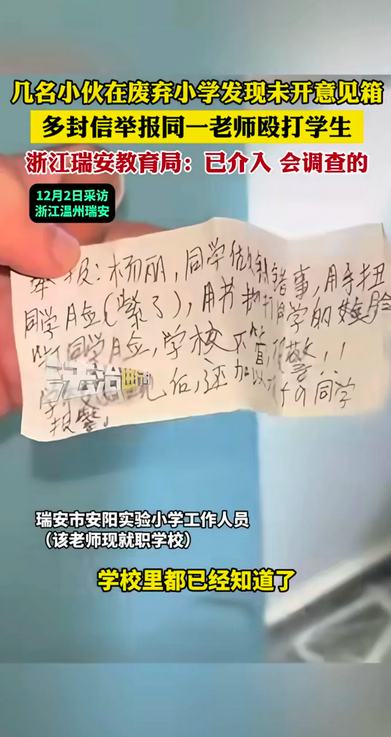 几名小伙在废弃小学发现未开意见箱
多封信举报同一老师殴打学生
浙江瑞安教育局：已介入 会调查的
12月2日采访
浙江温州瑞安
举报：杨丽，同学做错事，用手扭
同学脸（紫了），用书打同学的脸
同学脸，学校不管报警！！
后，还加以 同学
报警
瑞安市安阳实验小学工作人员
（该老师现就职学校）
学校里都已经知道了